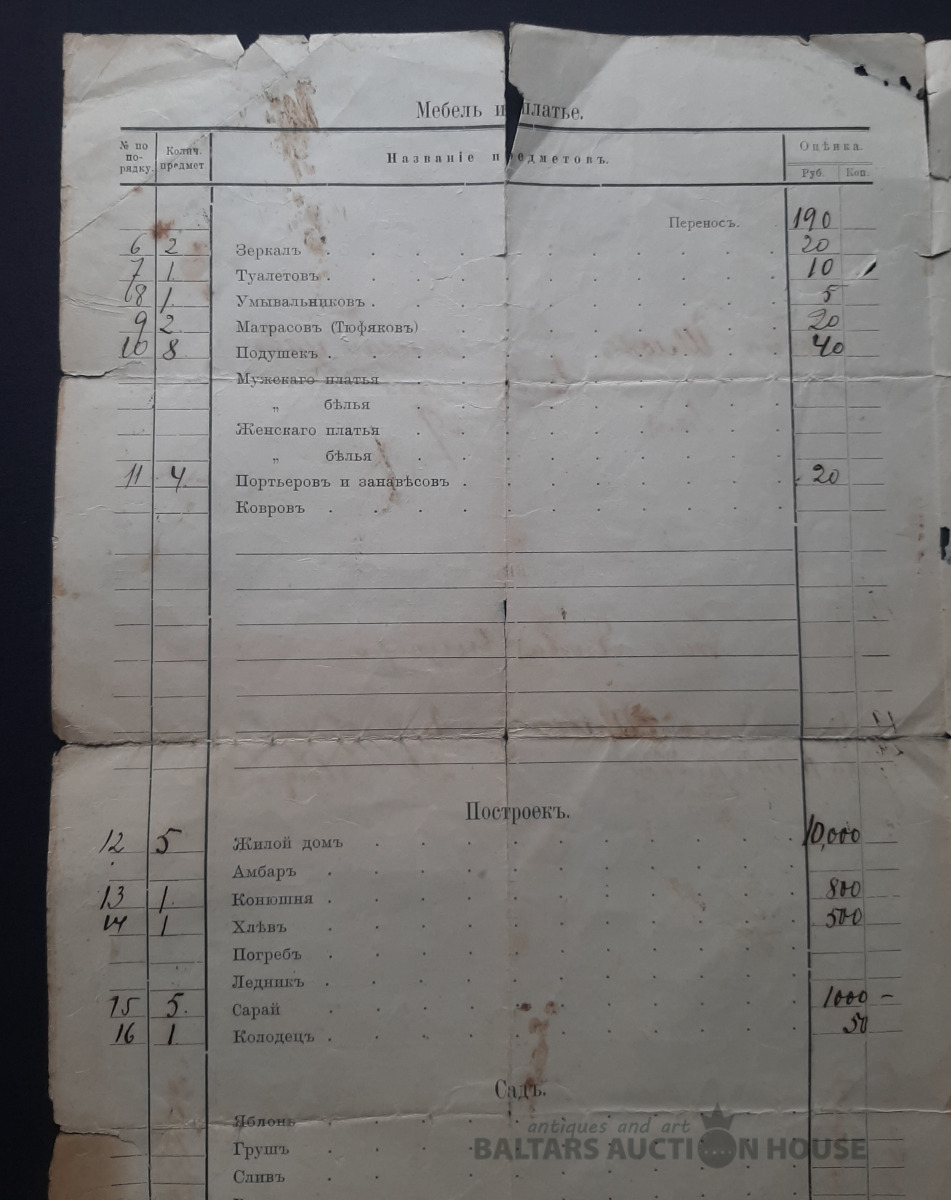 Мебель и платье.
№ по по-рядку. Колич. предмет. Названіе предметовъ. Оцѣнка.
Руб. Коп.
Переносъ. 190
6 2 Зеркалъ 20
7 1 Туалетовъ 10
8 1 Умывальниковъ 5
9 2 Матрасовъ (Тюфяковъ) 20
10 8 Подушекъ 40
Мужскаго платья
„ бѣлья
Женскаго платья
„ бѣлья
11 4 Портьеровъ и занавѣсовъ 20
Ковровъ
Построекъ.
12 5 Жилой домъ 10,000
Амбаръ
13 1 Конюшня 800
14 1 Хлѣвъ 500
Погребъ
Ледникъ
15 5 Сарай 1000 –
16 1 Колодецъ 50
Садъ.
Яблонь
Грушъ
Сливъ
antiques and art
BALTARS AUCTION HOUSE